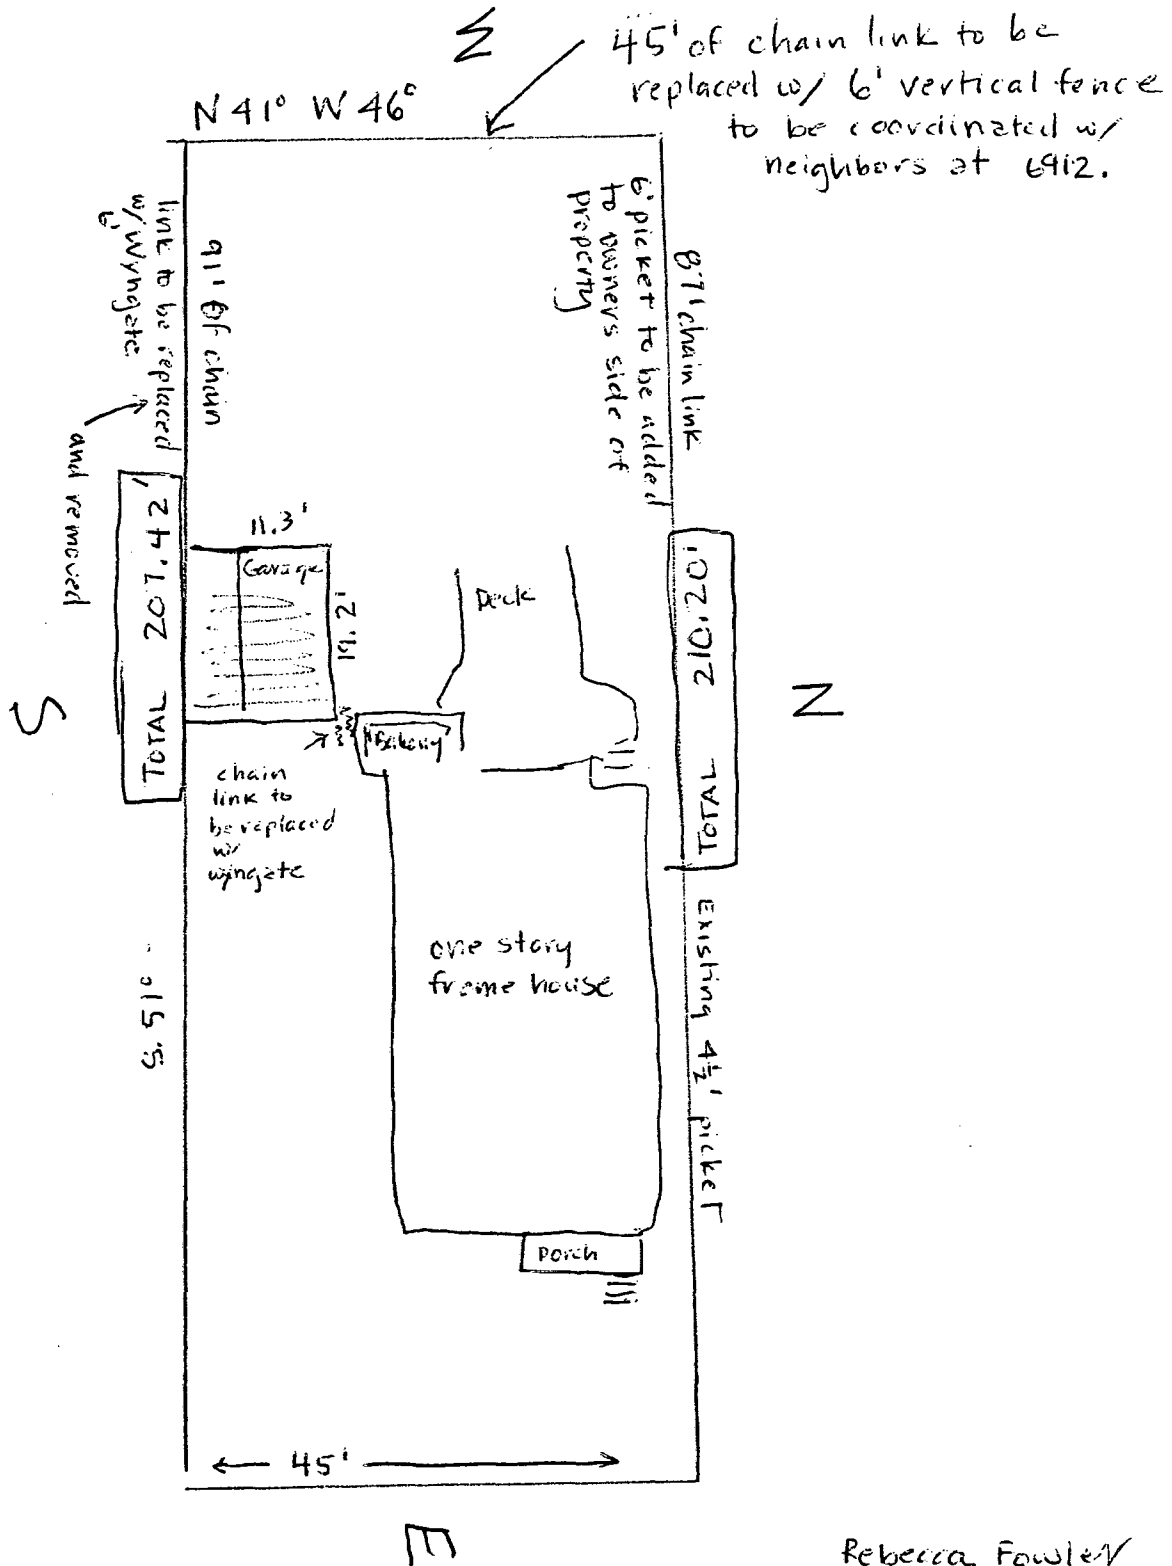 W
45' of chain link to be
replaced w/ 6' vertical fence
to be coordinated w/
neighbors at 6912.
N 41° W 46°
91' of chain
link to be replaced
w/ Wyngate
6'
and removed
6' picket to be added
to owners side of
property
87' chain link
TOTAL 207.42'
11.3'
Garage
19.2'
Deck
TOTAL 210.20'
S
N
Balcony
chain
link to
be replaced
w/
wyngate
one story
frame house
S. 51°
Existing 4½' picket
Porch
45'
E
Rebecca Fowler